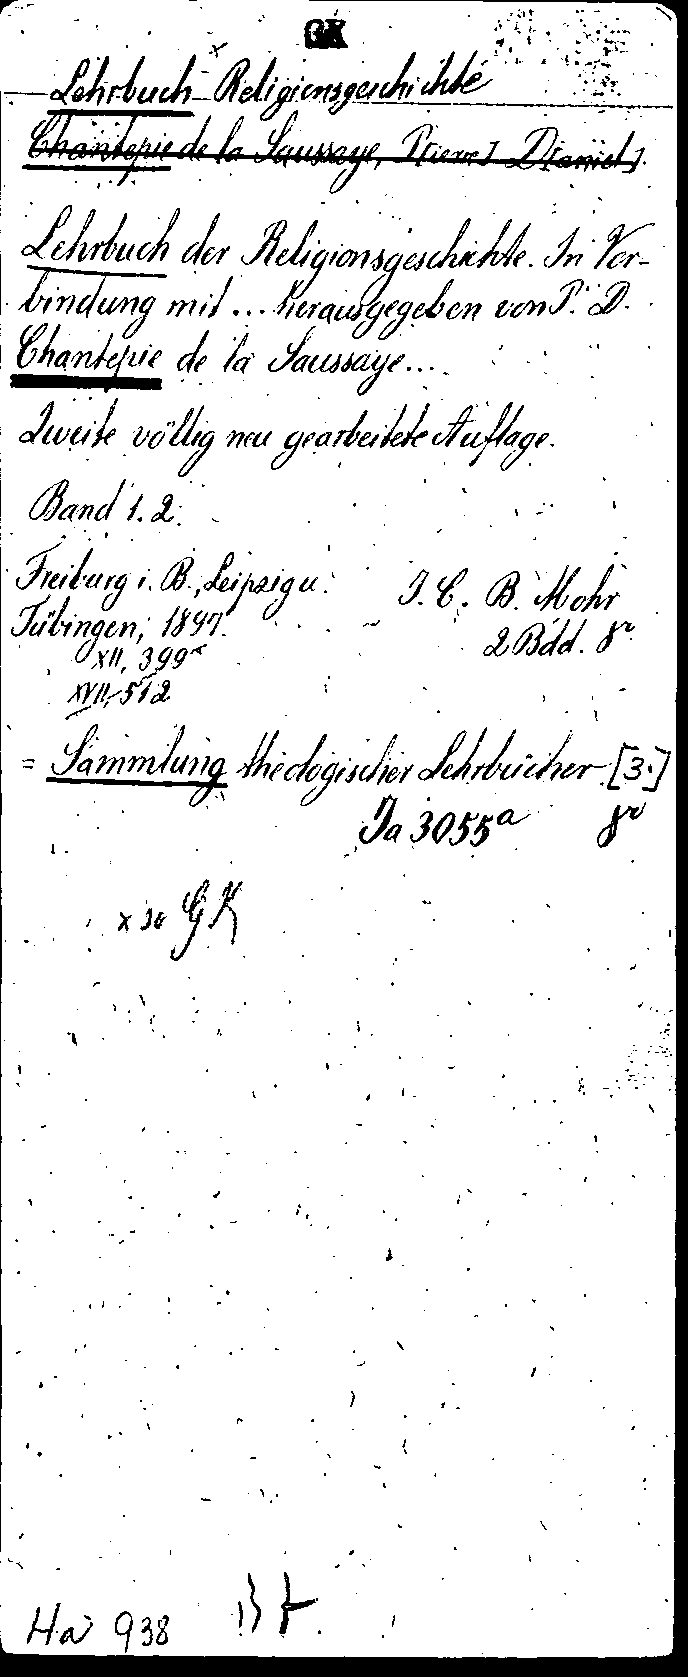 GK
x
Lehrbuch Religionsgeschichte
Chantepie de la Saussaye, P[ierre] D[aniel].
Lehrbuch der Religionsgeschichte. In Ver-
bindung mit ... herausgegeben von P. D.
Chantepie de la Saussaye...
Zweite völlig neu gearbeitete Auflage.
Band 1.2.
Freiburg i. B., Leipzig u. J. C. B. Mohr
Tübingen, 1897. 2 Bdd. 8°
XII, 399
XVII, 512
= Sammlung theologischer Lehrbücher [3.]
Ja 3055a 8°
GK
Ha 938